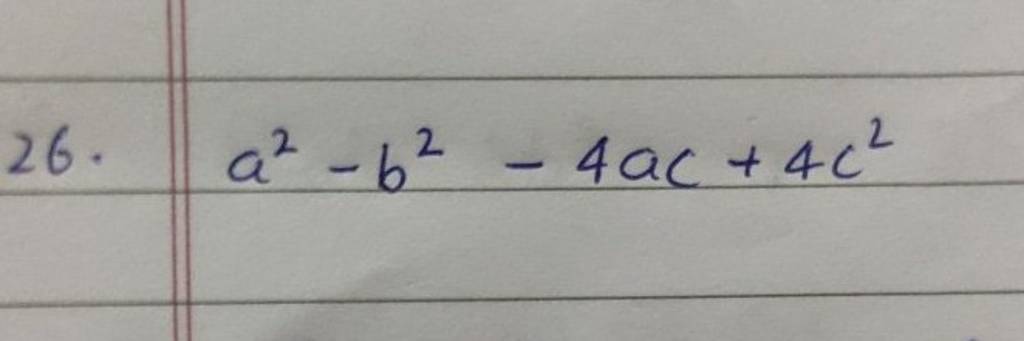 26. a² - b² - 4ac + 4c²